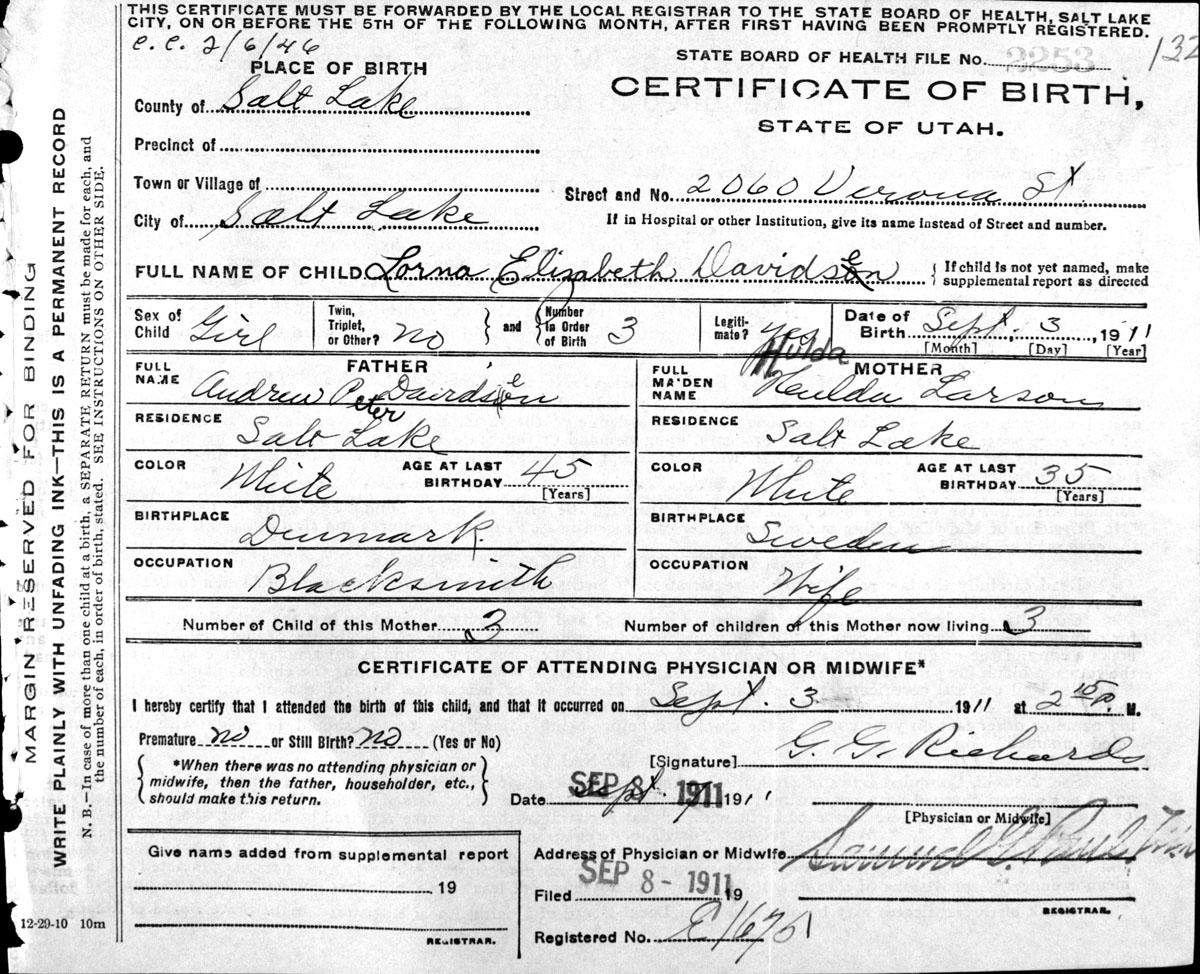 THIS CERTIFICATE MUST BE FORWARDED BY THE LOCAL REGISTRAR TO THE STATE BOARD OF HEALTH, SALT LAKE
CITY, ON OR BEFORE THE 5TH OF THE FOLLOWING MONTH, AFTER FIRST HAVING BEEN PROMPTLY REGISTERED.
C.C. 2/6/46
STATE BOARD OF HEALTH FILE No. 2253
132
PLACE OF BIRTH
CERTIFICATE OF BIRTH,
County of Salt Lake
STATE OF UTAH.
Precinct of
Town or Village of
Street and No. 2060 Verona St
City of Salt Lake
If in Hospital or other Institution, give its name instead of Street and number.
FULL NAME OF CHILD Lorna Elizabeth Davidsen
{ If child is not yet named, make
supplemental report as directed
Sex of Child Girl
Twin, Triplet, or Other? No
and
Number in Order of Birth 3
Legiti-mate? Yes
Date of Birth Sept. 3, 1911
[Month] [Day] [Year]
FATHER
FULL NAME Andrew Peter Davidsen
RESIDENCE Salt Lake
COLOR White
AGE AT LAST BIRTHDAY 45
[Years]
BIRTHPLACE Denmark
OCCUPATION Blacksmith
MOTHER
Hulda
FULL MAIDEN NAME Hulda Larson
RESIDENCE Salt Lake
COLOR White
AGE AT LAST BIRTHDAY 35
[Years]
BIRTHPLACE Sweden
OCCUPATION Wife
Number of Child of this Mother 3
Number of children of this Mother now living 3
CERTIFICATE OF ATTENDING PHYSICIAN OR MIDWIFE*
I hereby certify that I attended the birth of this child, and that it occurred on Sept. 3 1911 at 2 10 P. M.
Premature no or Still Birth? no (Yes or No)
*When there was no attending physician or
midwife, then the father, householder, etc.,
should make this return.
[Signature] G. G. Richards
Date Sept. SEP 8 1911 1911
[Physician or Midwife]
Give name added from supplemental report
19
REGISTRAR.
Address of Physician or Midwife
Filed SEP 8 - 1911 19
REGISTRAR.
Registered No.
MARGIN RESERVED FOR BINDING
WRITE PLAINLY WITH UNFADING INK—THIS IS A PERMANENT RECORD
N. B.—In case of more than one child at a birth, a SEPARATE RETURN must be made for each, and
the number of each, in order of birth, stated. SEE INSTRUCTIONS ON OTHER SIDE.
12-29-10 10m